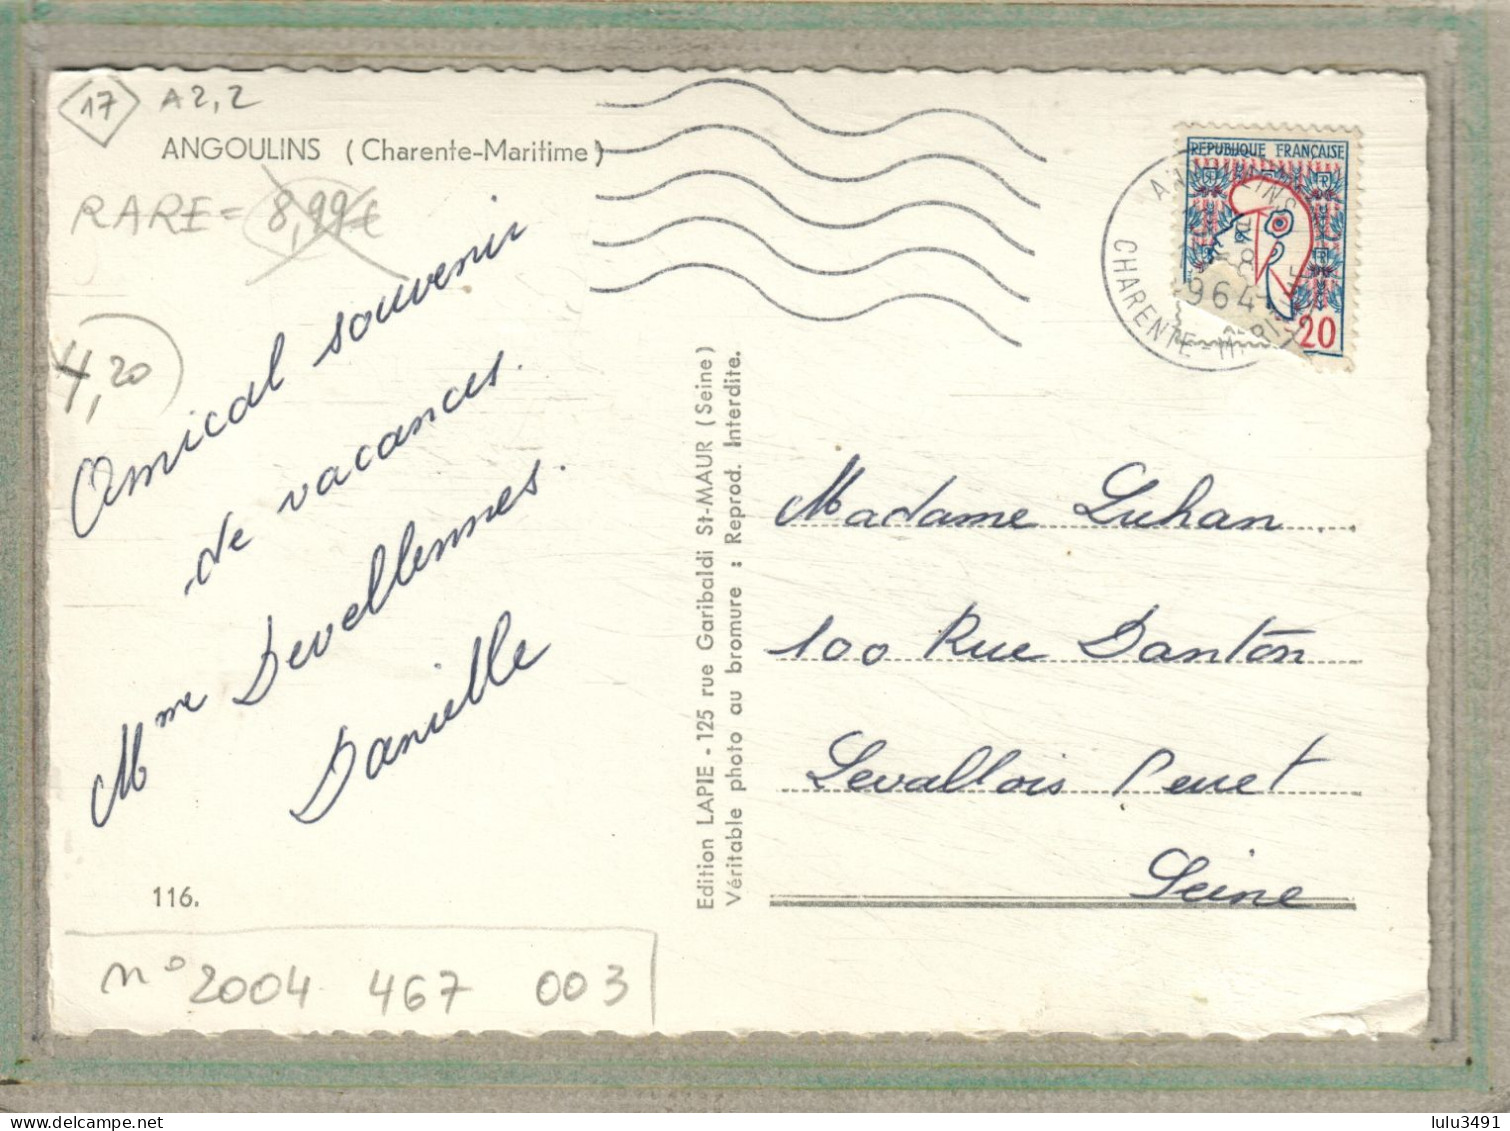 17 A2,2
ANGOULINS (Charente-Maritime)
RARE = 8,99€
4,20
Amical souvenir
de vacances.
Mme Devellennes.
Danielle
116.
n° 2004 467 003
Edition LAPIE - 125 rue Garibaldi St-MAUR (Seine)
Véritable photo au bromure : Reprod. Interdite.
REPUBLIQUE FRANÇAISE
20
-8
964
CHARENTE-
Madame Luhan
100 Rue Danton
Levallois Perret
Seine
lulu3491